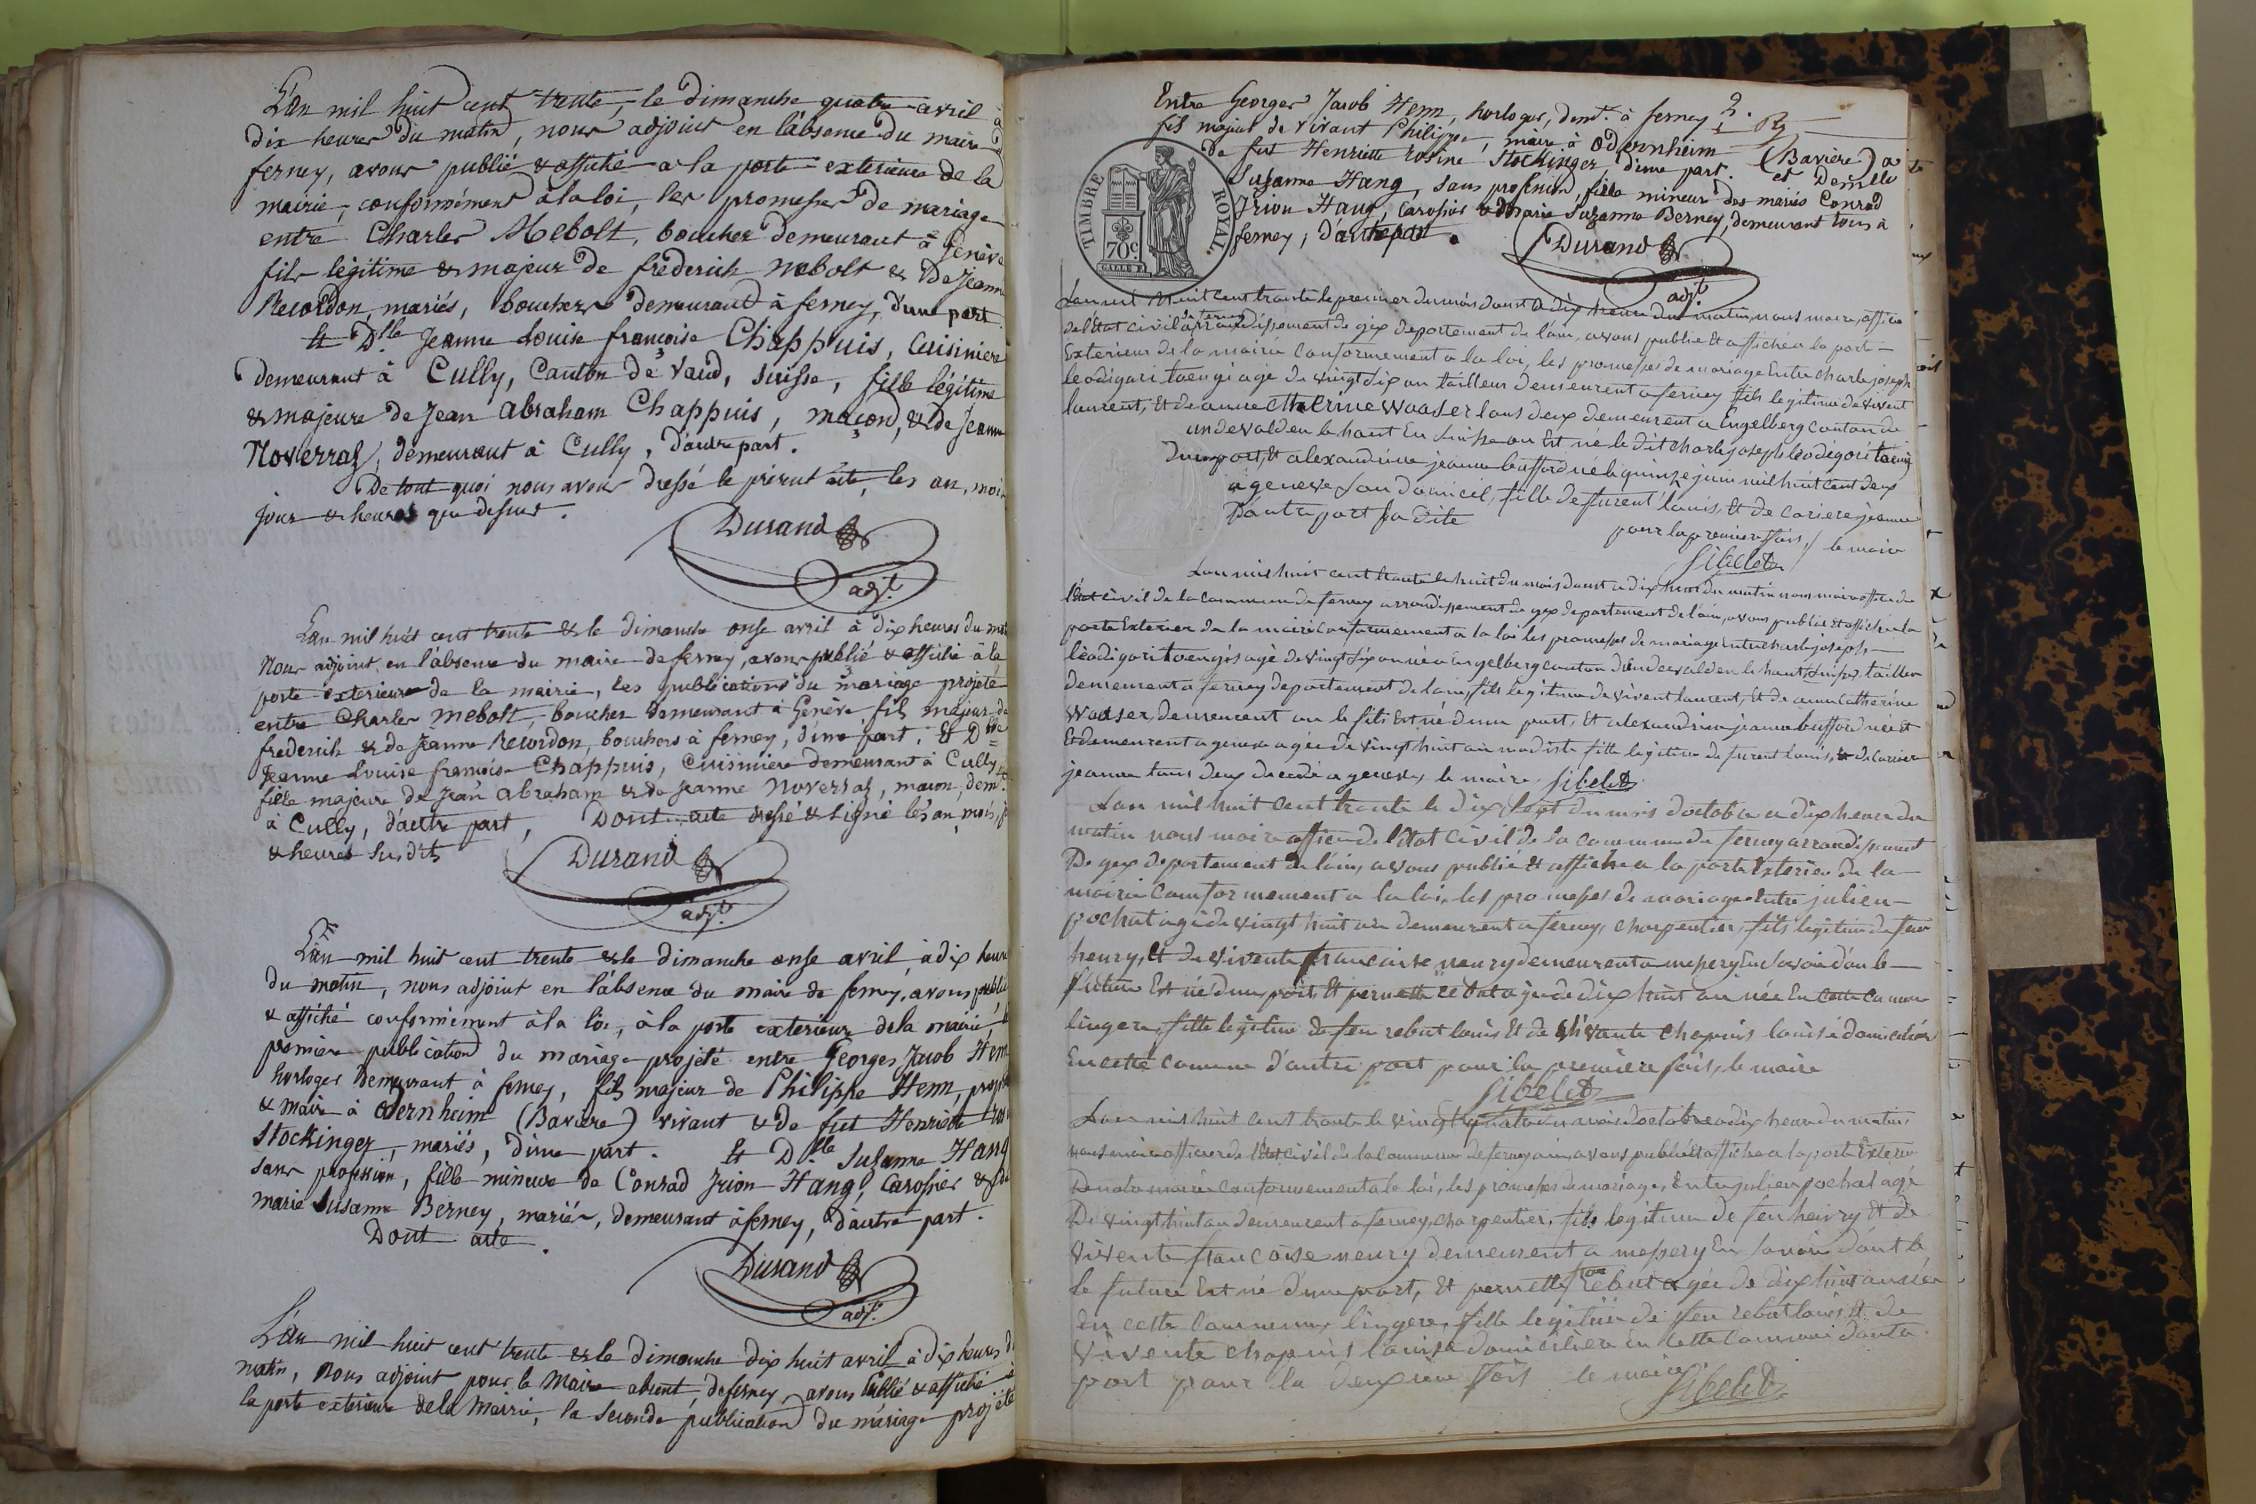 L'an mil huit cent trente, le dimanche quatre avril à
dix heures du matin, nous adjoint en l'absence du maire de
ferney, avons publié & affiché a la porte exterieure de la
mairie, conformément à la loi, les promesses de mariage
entre Charles Mebolt, boucher demeurant à Genève
fils légitime & majeur de frederich Mebolt & de Jeanne
Recordon, mariés, bouchers demeurant à ferney, d'une part.
Et Dlle Jeanne Louise françoise Chappuis, Cuisinière
demeurant à Cully, Canton de Vaud, Suisse, fille légitime
& majeure de Jean Abraham Chappuis, maçon, & de Jeanne
Noverraz, demeurant à Cully, d'autre part.
De tout quoi nous avons dressé le présent acte, les an, mois
jour & heures que dessus.
Durand
adjt.
L'an mil huit cent trente & le dimanche onse avril à dix heures du mat
Nous adjoint, en l'absence du maire de ferney, avons publié & affiché à la
porte exterieure de la mairie, les publications du mariage projeté
entre Charles Mebolt, boucher demeurant à Genève, fils majeur de
frederich & de Jeanne Recordon, bouchers à ferney, d'une part, & Dlle
Jeanne Louise françoise Chappuis, Cuisinière demeurant à Cully,
fille majeure de Jean Abraham & de Jeanne Noverraz, macon, demt.
à Cully, d'autre part, Dont acte dressé & signé les an, mois, j
& heures susdits
Durand
adjt.
L'an mil huit cent trente & le dimanche onse avril, à dix heures
du matin, nous adjoint en l'absence du maire de ferney, avons publié
& affiché conformément à la loi, à la porte exterieur dela mairie, la
première publication du mariage projeté entre Georges Jacob Henn
horloger demeurant à ferney, fils majeur de Philippe Henn, prop
& maire à Odernheim (Baviere) vivant & de fut Henriette ros
Stockinger, mariés, d'une part. Et Dlle Suzanne Haug
sans profession, fille mineure de Conrad Jrion Haug, Carossier & de
marie Susanne Berney, mariés, demeurant à ferney, d'autre part.
Dont acte.
Durand
adjt.
L'an mil huit cent trente & le dimanche dix huit avril à dix heures du
matin, nous adjoint pour le Maire absent, de ferney, avons publié & affiché à
la porte exterieure de la Mairie, la seconde publication du mariage projeté
Entre Georges Jacob Henn, horloger, demt. à ferney
fils majeur de vivant Philippe, maire à Odernheim (Bavière) &
de fut Henriette rosine Stockinger, d'une part. et Demlle
Suzanne Haug, sans profession, fille mineur des mariés Conrad
Jrion Haug, Carossier & Marie Suzanne Berney, demeurant tous à
ferney, d'autre part.
TIMBRE ROYAL
70c
Durand
adjt.
Lan mil huit cent trente le premier du mois daout a dix heure du matin, nous maire, officie
de l'état civil de ferney arrondissement de gex departement de l'ain, avons publie et affiché a la port
Exterieur de la mairie Conformement a la loi, les promesses de mariage Entre charle joseph
leodigari agé de vingt six an tailleur demeurent a ferney fils legitime de vivent
laurent, Et de anne Catherine Waaser tous deux demeurent a Engelberg canton de
undevalden le haut En Suisse ou Est né le dit charle joseph leodegari
Dune part, Et alexandrine jeanne né le quinze juin mil huit cent deux
a geneve Son domicil, fille de furent louis, Et de cariere jeanne
Dautre part Sa dite
pour la premiere fois, le maire
Sibelet
Lan mil huit cent trente le huit du mois daout a dix heure du matin nous maire officie de
l'état civil de la Commune de ferney arrondissement de gex departement de l'ain, avons publié et affiche a la
porte Exterier de la mairie conformement a la loi les promesses de mariage entre charle joseph
leodigari agé de vingt six an né a Engelberg canton dundevalden le haut, Suisse, tailleur
demeurent a ferney departement de lain, fils legitime de vivent laurent, Et de anne Catherine
Waaser, demeurent ou le fils Est né dune part, Et alexandrine jeanne née Et
Et demeurent a geneve agée de vingt huit an modiste fille legitime de furent louis, & de cariere
jeanne tous deux decedé a geneve, le maire. Sibelet
Lan mil huit Cent trante le dix Sept du mois d'octobre a dix heure du
matin nous maire officie de l'Etat Civil de la Commune de ferney arrondissement
De gex departement de l'ain, avons publié et affiche a la porte Exterieu de la
mairie Conformement a la loi, les promesses de mariage Entre julien
pochat agé de vingt huit an demeurent a ferney, charpentier, fils legitime de feu
henry, Et de vivente francoise neury demeurent a messery En Savoie d'ou le
futur Est né d'une part, Et pernette rebut agée de dix huit an née En Cette Commune
lingere, fille legitime de feu rebut louis, Et de vivante chapuis louise domicilier
En cette Comune d'autre part pour la premiere fois, le maire
Sibelet
Lan mil huit Cent trante le vingt quatre du mois doctobre a dix heure du matin,
nous maire officier de l'Etat Civil de la Commune de ferney ain, avons publié et affiche a la porte Exterieu
De la mairie Conformement a la loi, les promesses de mariage, Entre julien pochat agé
De vingt huit an demeurent a ferney, charpentier, fils legitime de feu henry Et de
vivente francoise neury demeurent a messery En Savoie dont le
le future Est né d'une part, Et pernette rebut agée de dix huit an née
en cette Commune, lingere, fille legitime de feu rebut louis, Et de
vivente chapuis louise domicilier En Cette Commune dautre
part pour la deuxieme fois le maire
Sibelet